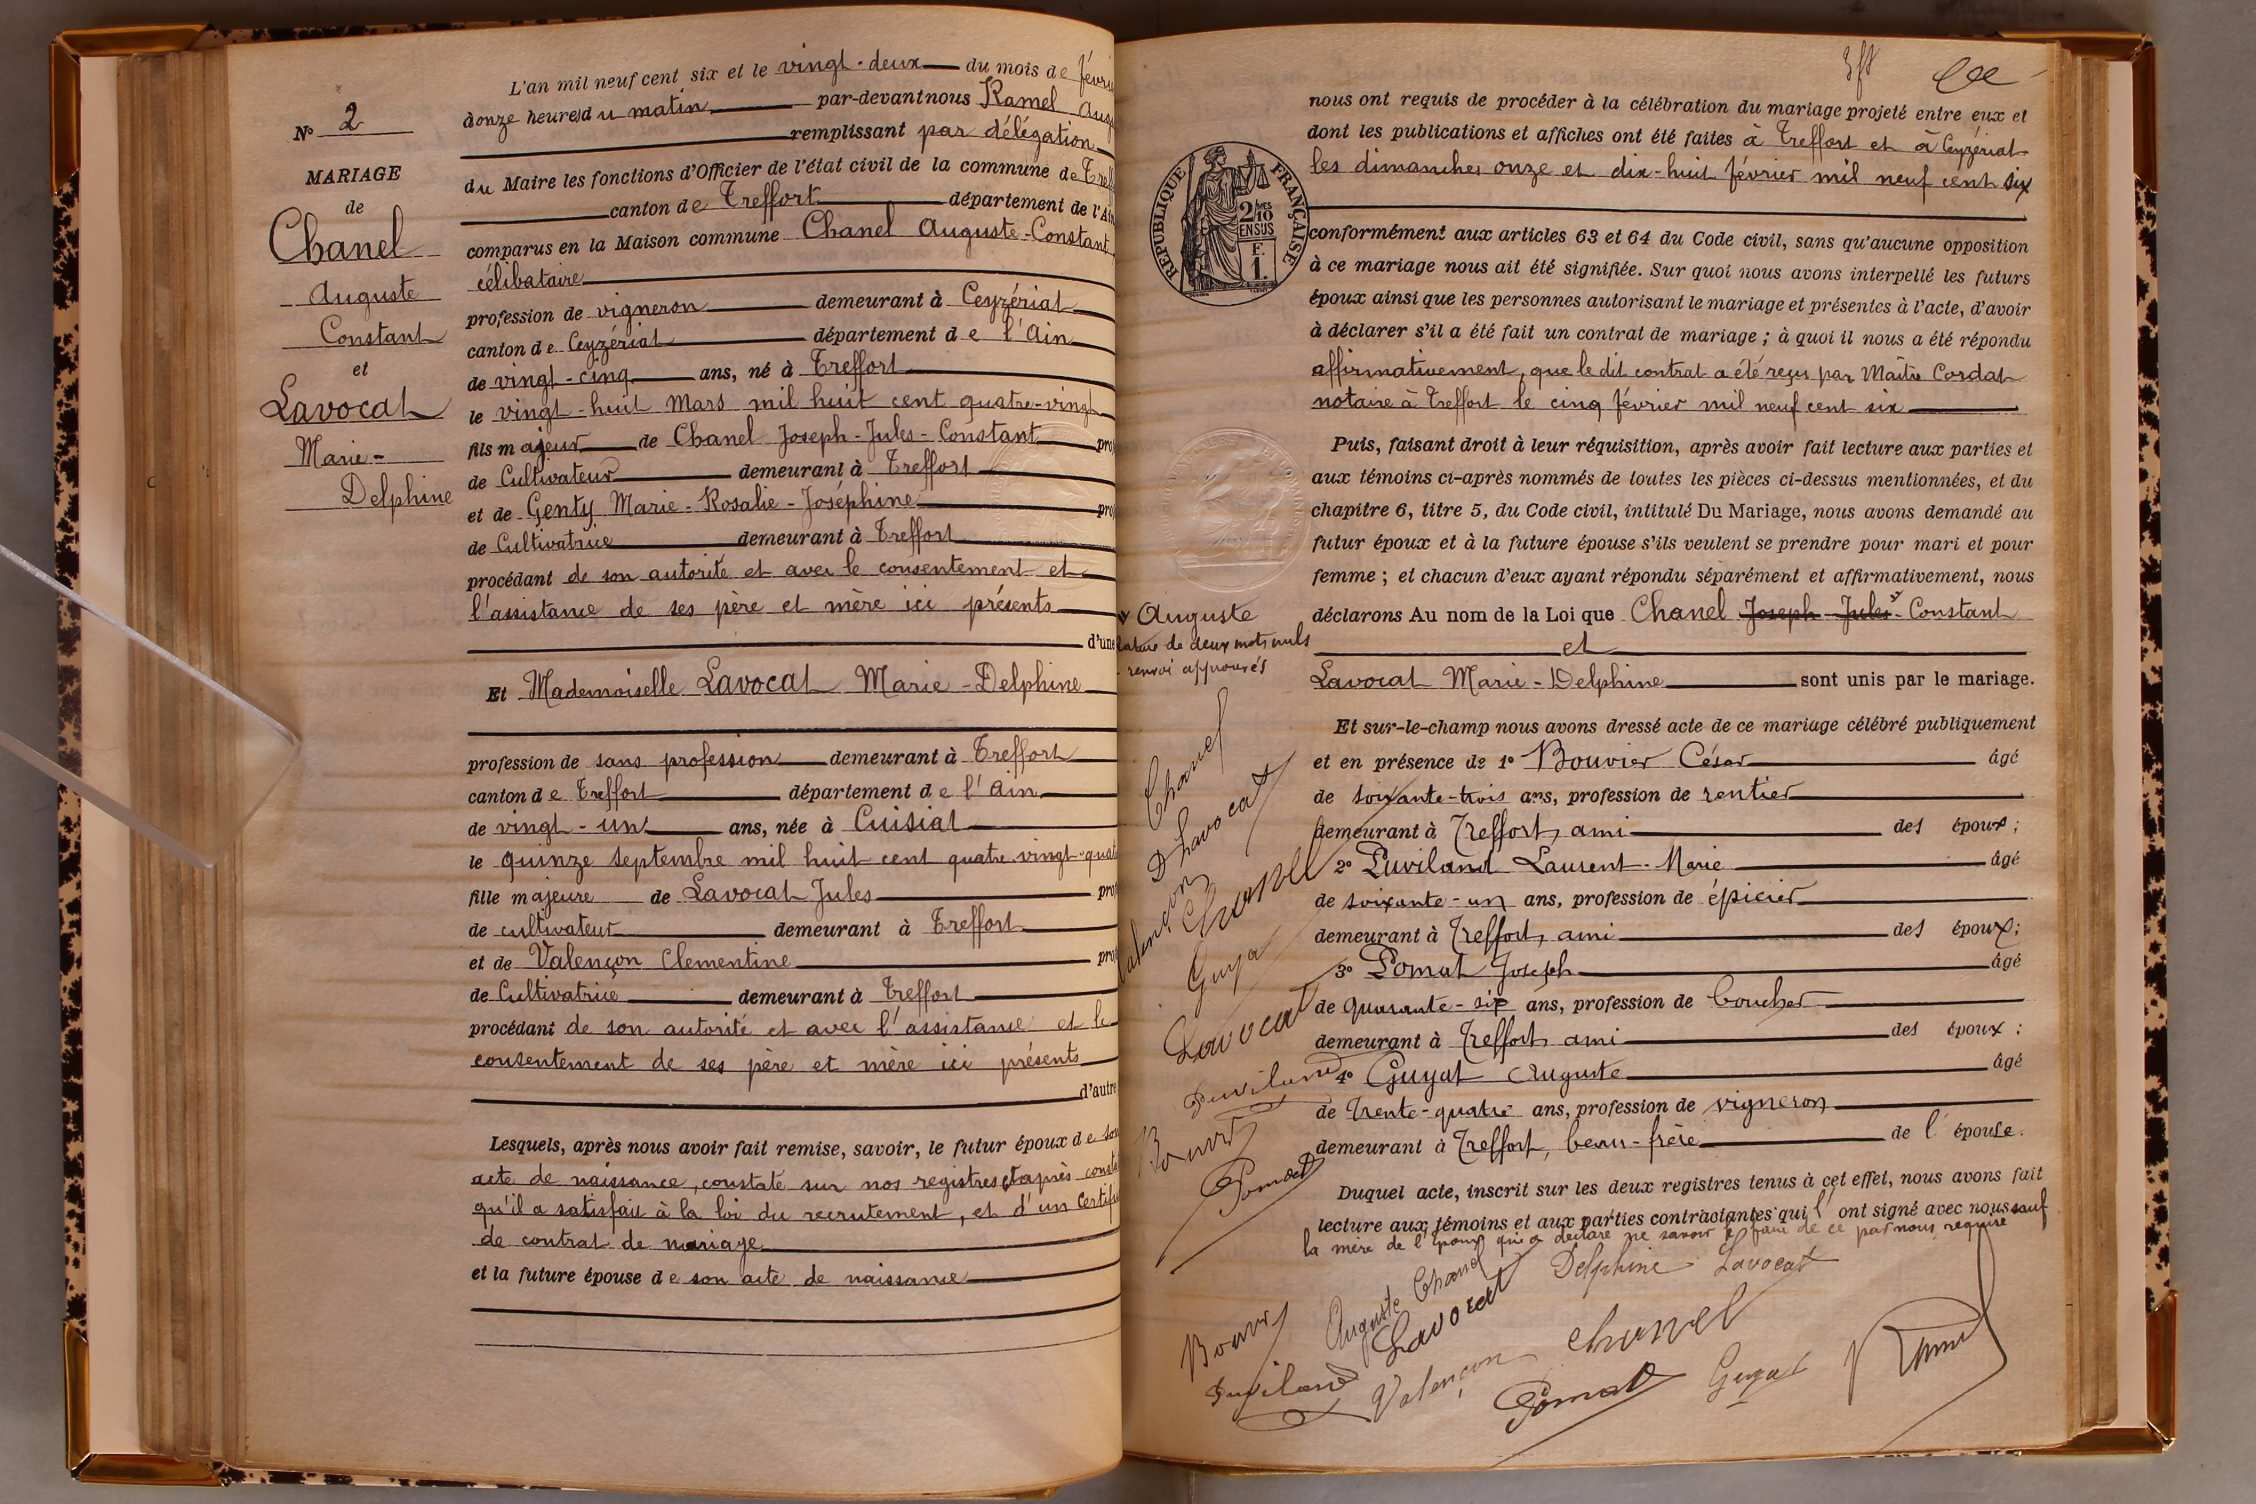 N° 2
MARIAGE
de
Chanel
Auguste
Constant
et
Lavocat
Marie-
Delphine
L'an mil neuf cent six et le vingt-deux du mois de févri
à onze heures du matin, par-devant nous Ramel Aug
remplissant par délégation
du Maire les fonctions d'Officier de l'état civil de la commune de Treff
canton de Treffort département de l'Ain
comparus en la Maison commune Chanel Auguste-Constant
célibataire
profession de vigneron demeurant à Ceyzériat
canton de Ceyzériat département de l'Ain
de vingt-cinq ans, né à Treffort
le vingt-huit Mars mil huit cent quatre-vingt
fils majeur de Chanel Joseph-Jules-Constant pro
de Cultivateur demeurant à Treffort
et de Genty Marie-Rosalie-Joséphine pro
de Cultivatrice demeurant à Treffort
procédant de son autorité et avec le consentement et
l'assistance de ses père et mère ici présents
d'une
Et Mademoiselle Lavocat Marie-Delphine
profession de sans profession demeurant à Treffort
canton de Treffort département de l'Ain
de vingt-un ans, née à Cuisiat
le quinze septembre mil huit cent quatre-vingt-quat
fille majeure de Lavocat Jules pro
de cultivateur demeurant à Treffort
et de Valençon Clementine pro
de Cultivatrice demeurant à Treffort
procédant de son autorité et avec l'assistance et le
consentement de ses père et mère ici présents
d'autre
Lesquels, après nous avoir fait remise, savoir, le futur époux de son
acte de naissance, constaté sur nos registres, et après consta
qu'il a satisfait à la loi du recrutement, et d'un certifi
de contrat de mariage
et la future épouse de son acte de naissance
nous ont requis de procéder à la célébration du mariage projeté entre eux et
dont les publications et affiches ont été faites à Treffort et à Ceyzériat
les dimanches onze et dix-huit février mil neuf cent six
RÉPUBLIQUE FRANÇAISE
2 MES
10
EN SUS
F.
1.
conformément aux articles 63 et 64 du Code civil, sans qu'aucune opposition
à ce mariage nous ait été signifiée. Sur quoi nous avons interpellé les futurs
époux ainsi que les personnes autorisant le mariage et présentes à l'acte, d'avoir
à déclarer s'il a été fait un contrat de mariage ; à quoi il nous a été répondu
affirmativement, que le dit contrat a été reçu par Maître Cordat
notaire à Treffort le cinq février mil neuf cent six
Puis, faisant droit à leur réquisition, après avoir fait lecture aux parties et
aux témoins ci-après nommés de toutes les pièces ci-dessus mentionnées, et du
chapitre 6, titre 5, du Code civil, intitulé Du Mariage, nous avons demandé au
futur époux et à la future épouse s'ils veulent se prendre pour mari et pour
femme ; et chacun d'eux ayant répondu séparément et affirmativement, nous
déclarons Au nom de la Loi que Chanel Joseph-Jules-Constant
et
Lavocat Marie-Delphine sont unis par le mariage.
Auguste
rature de deux mots nuls
renvoi approuvés
Et sur-le-champ nous avons dressé acte de ce mariage célébré publiquement
et en présence de 1° Bouvier César âgé
de soixante-trois ans, profession de rentier
demeurant à Treffort, ami des époux ;
2° Puviland Laurent-Marie âgé
de soixante-un ans, profession de épicier
demeurant à Treffort, ami des époux ;
3° Pomat Joseph âgé
de quarante-six ans, profession de boucher
demeurant à Treffort, ami des époux :
4° Guyat Auguste âgé
de trente-quatre ans, profession de vigneron
demeurant à Treffort, beau-frère de l'épouse.
Duquel acte, inscrit sur les deux registres tenus à cet effet, nous avons fait
lecture aux témoins et aux parties contractantes qui l'ont signé avec nous sauf
la mère de l'époux qui a déclaré ne savoir le faire de ce par nous requise
Chanel
D Lavocat
Valençon
Chanel
Guyat
Lavocat
Puviland
Bouvier
Pomat
Auguste Chanel
Delphine Lavocat
Lavocat
Bouvier
Chanel
Puviland
Valençon
Pomat
Guyat
Ramel